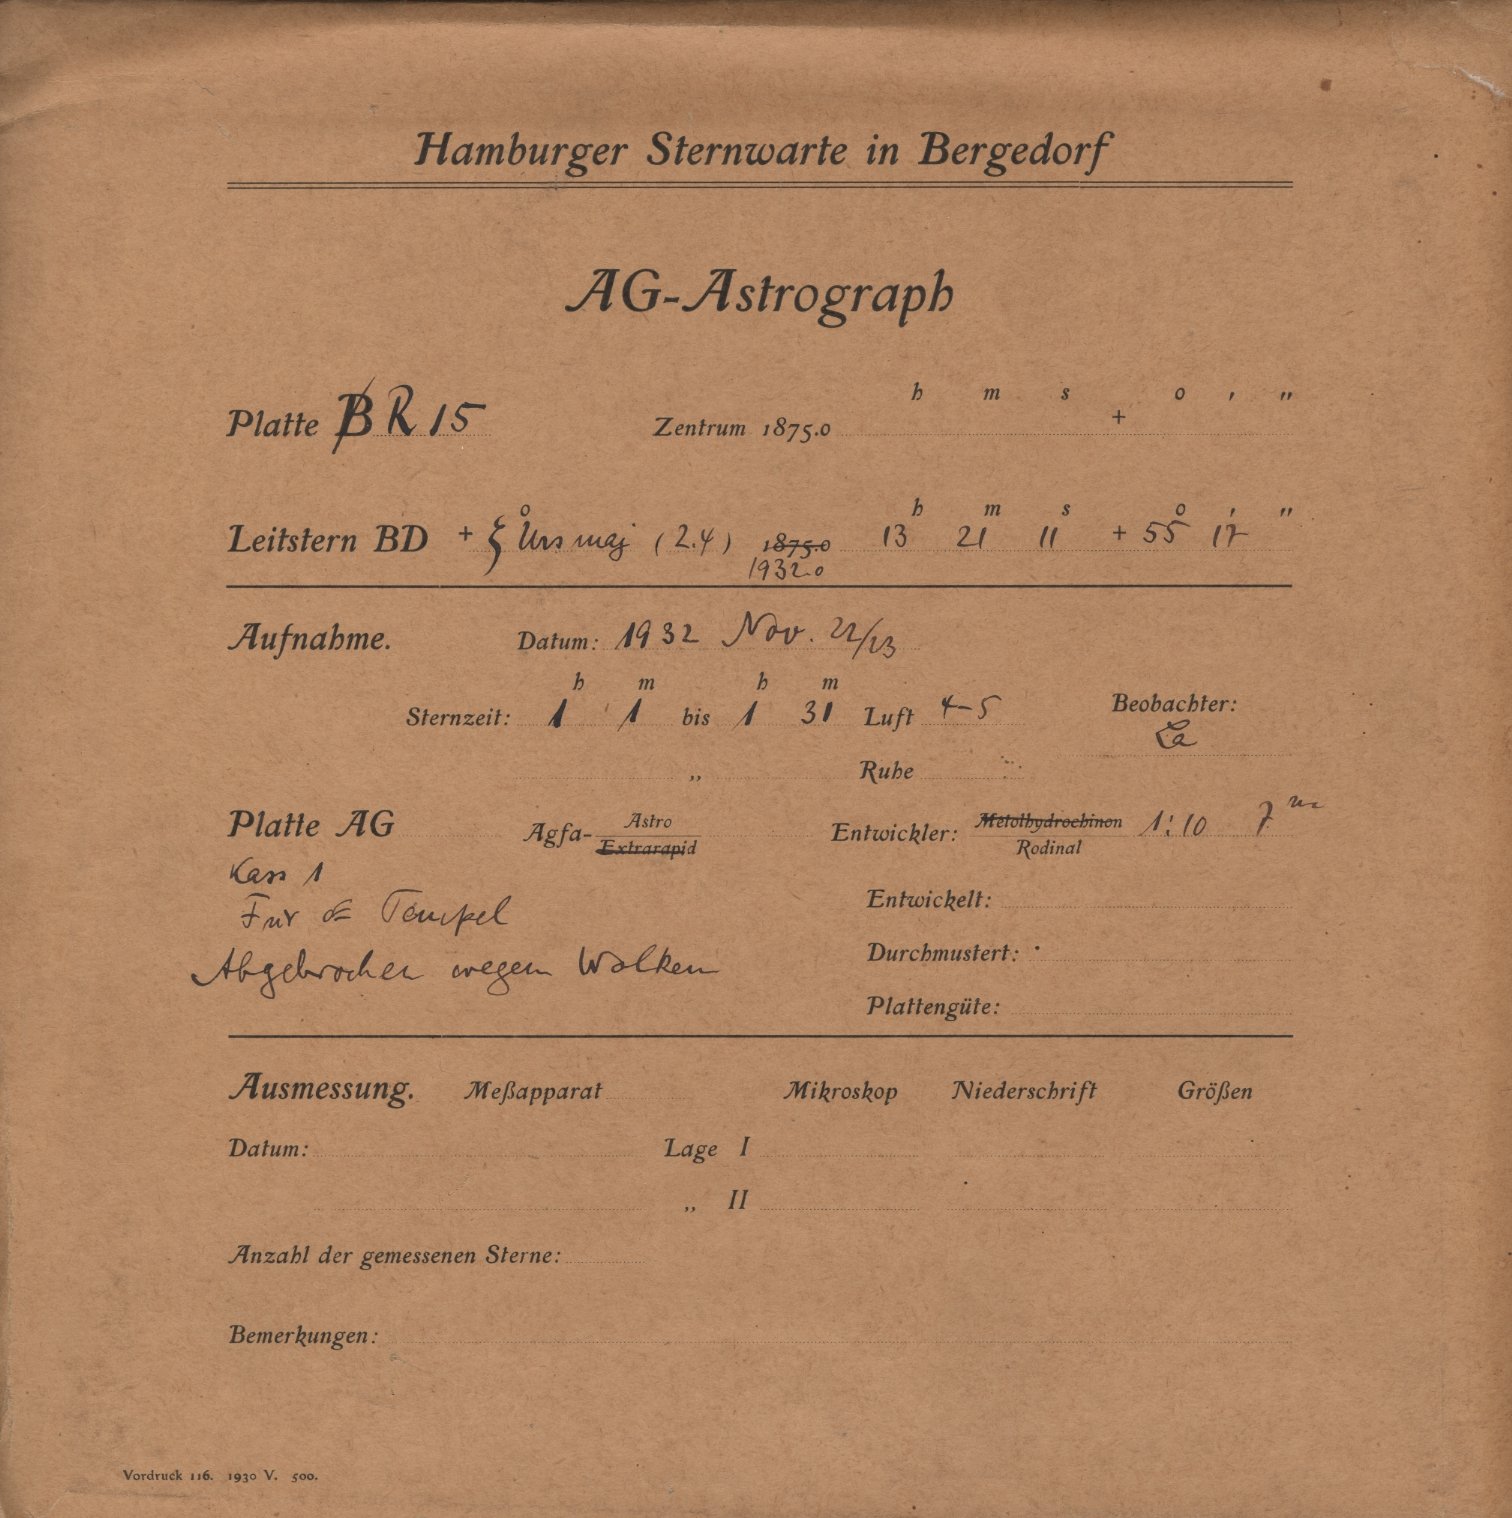 Hamburger Sternwarte in Bergedorf
AG-Astrograph
h m s o ′ ″
Platte BR 15 Zentrum 1875.0 +
o h m s o ′ ″
Leitstern BD + ξ Urs maj (2.4) 1875.0 13 21 11 + 55 17
1932.0
Aufnahme. Datum: 1932 Nov. 22/23
h m h m
Sternzeit: 1 1 bis 1 31 Luft 4-5 Beobachter:
La
„ Ruhe
Platte AG Agfa- Astro Entwickler: Metolhydrochinon 1:10 7 m
Extrarapid Rodinal
Kass 1
Entwickelt:
Für Tempel
Durchmustert:
Abgebrochen wegen Wolken
Plattengüte:
Ausmessung. Meßapparat Mikroskop Niederschrift Größen
Datum: Lage I
„ II
Anzahl der gemessenen Sterne:
Bemerkungen:
Vordruck 116. 1930 V. 500.